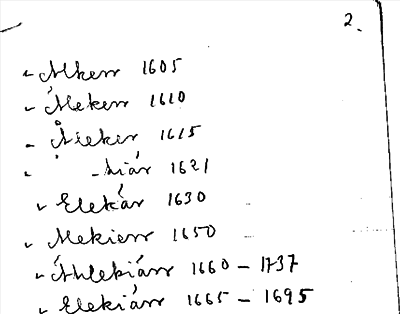 2.
- Alkerr 1605
- Álekerr 1610
- Åleker 1615
- " -kiár 1621
- Elekár 1630
- Alekierr 1650
- Áhlekiárr 1660 – 1737
- Elekiárr 1665 – 1695